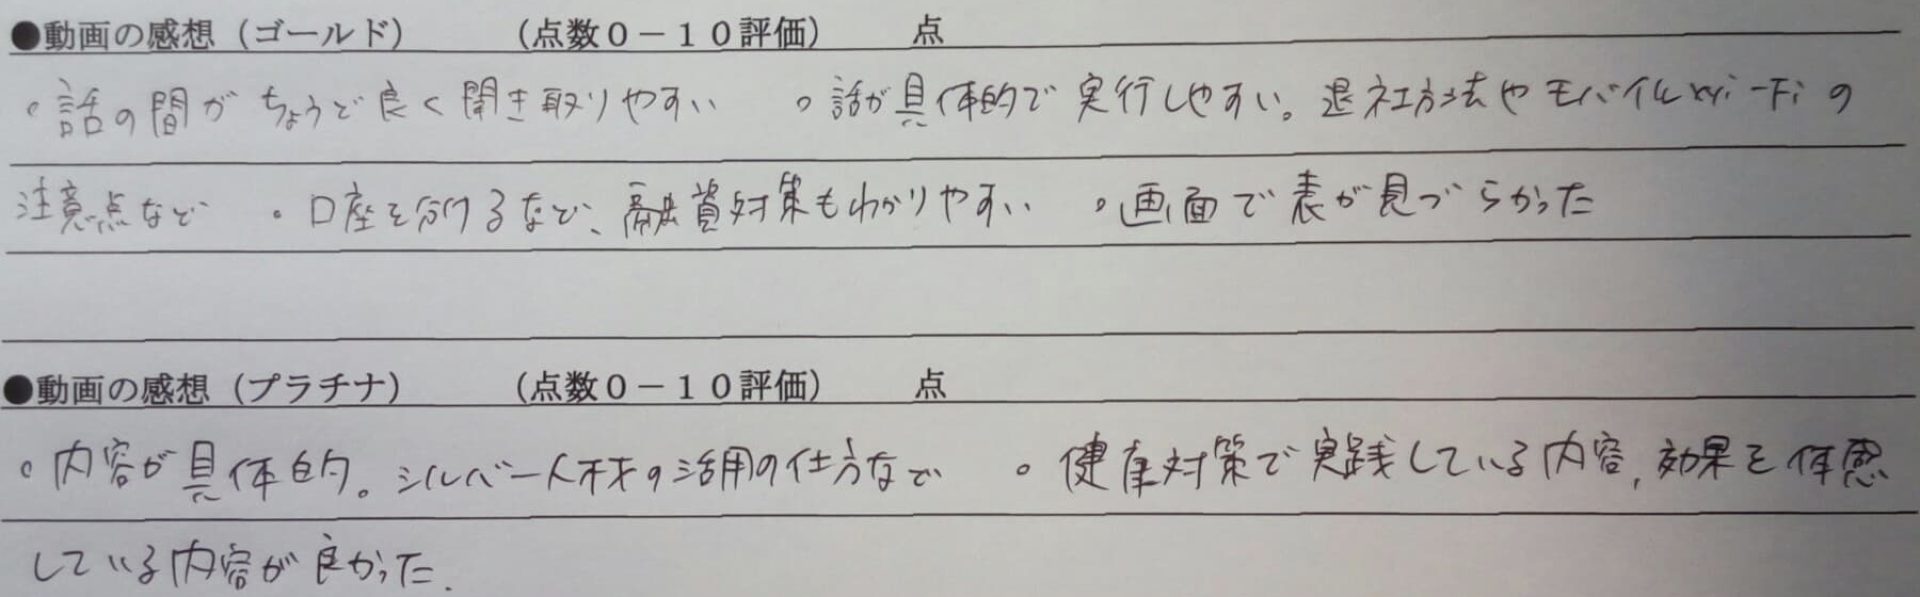 ●動画の感想（ゴールド）　（点数０－１０評価）　点
。話の間がちょうど良く聞き取りやすい　。話が具体的で実行しやすい。退社方法やモバイルwi-Fiの
注意点など　。口座を分けるなど、融資対策もわかりやすい　。画面で表が見づらかった
●動画の感想（プラチナ）　（点数０－１０評価）　点
。内容が具体的。シルバー人材の活用の仕方など　。健康対策で実践している内容,効果を体感
している内容が良かった.